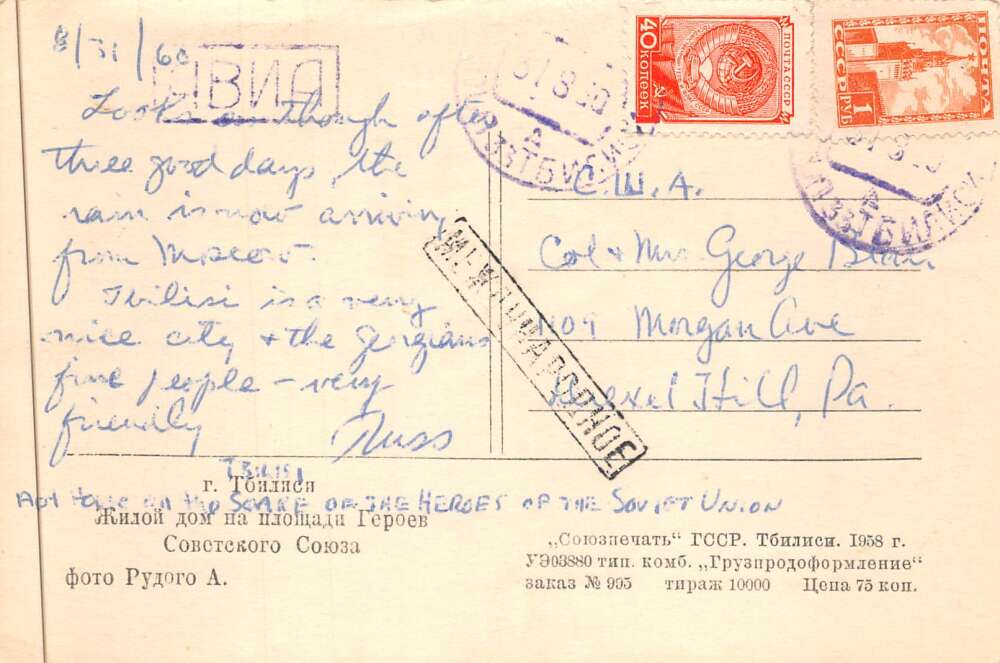 8/31/60
АВИА
Looks as though after
three good days, the
rain is now arriving
from Moscow.
Tbilisi is a very
nice city & the Georgians
fine people – very
friendly
Russ
40 КОПЕЕК
ПОЧТА СССР
ПОЧТА
СССР
1 РУБ
31 8 60
ТБИЛИСИ
31 8
ТБИЛИСИ
С.Ш.А.
МЕЖДУНАРОДНОЕ
Col & Mrs George Blair
409 Morgan Ave
Drexel Hill, Pa.
TBILISI
г. Тбилиси
ON THE SQUARE OF THE HEROES OF THE SOVIET UNION
Жилой дом на площади Героев
Советского Союза
фото Рудого А.
„Союзпечать“ ГССР. Тбилиси. 1958 г.
УЭ03880 тип. комб. „Грузпродоформление“
заказ № 995 тираж 10000 Цена 75 коп.